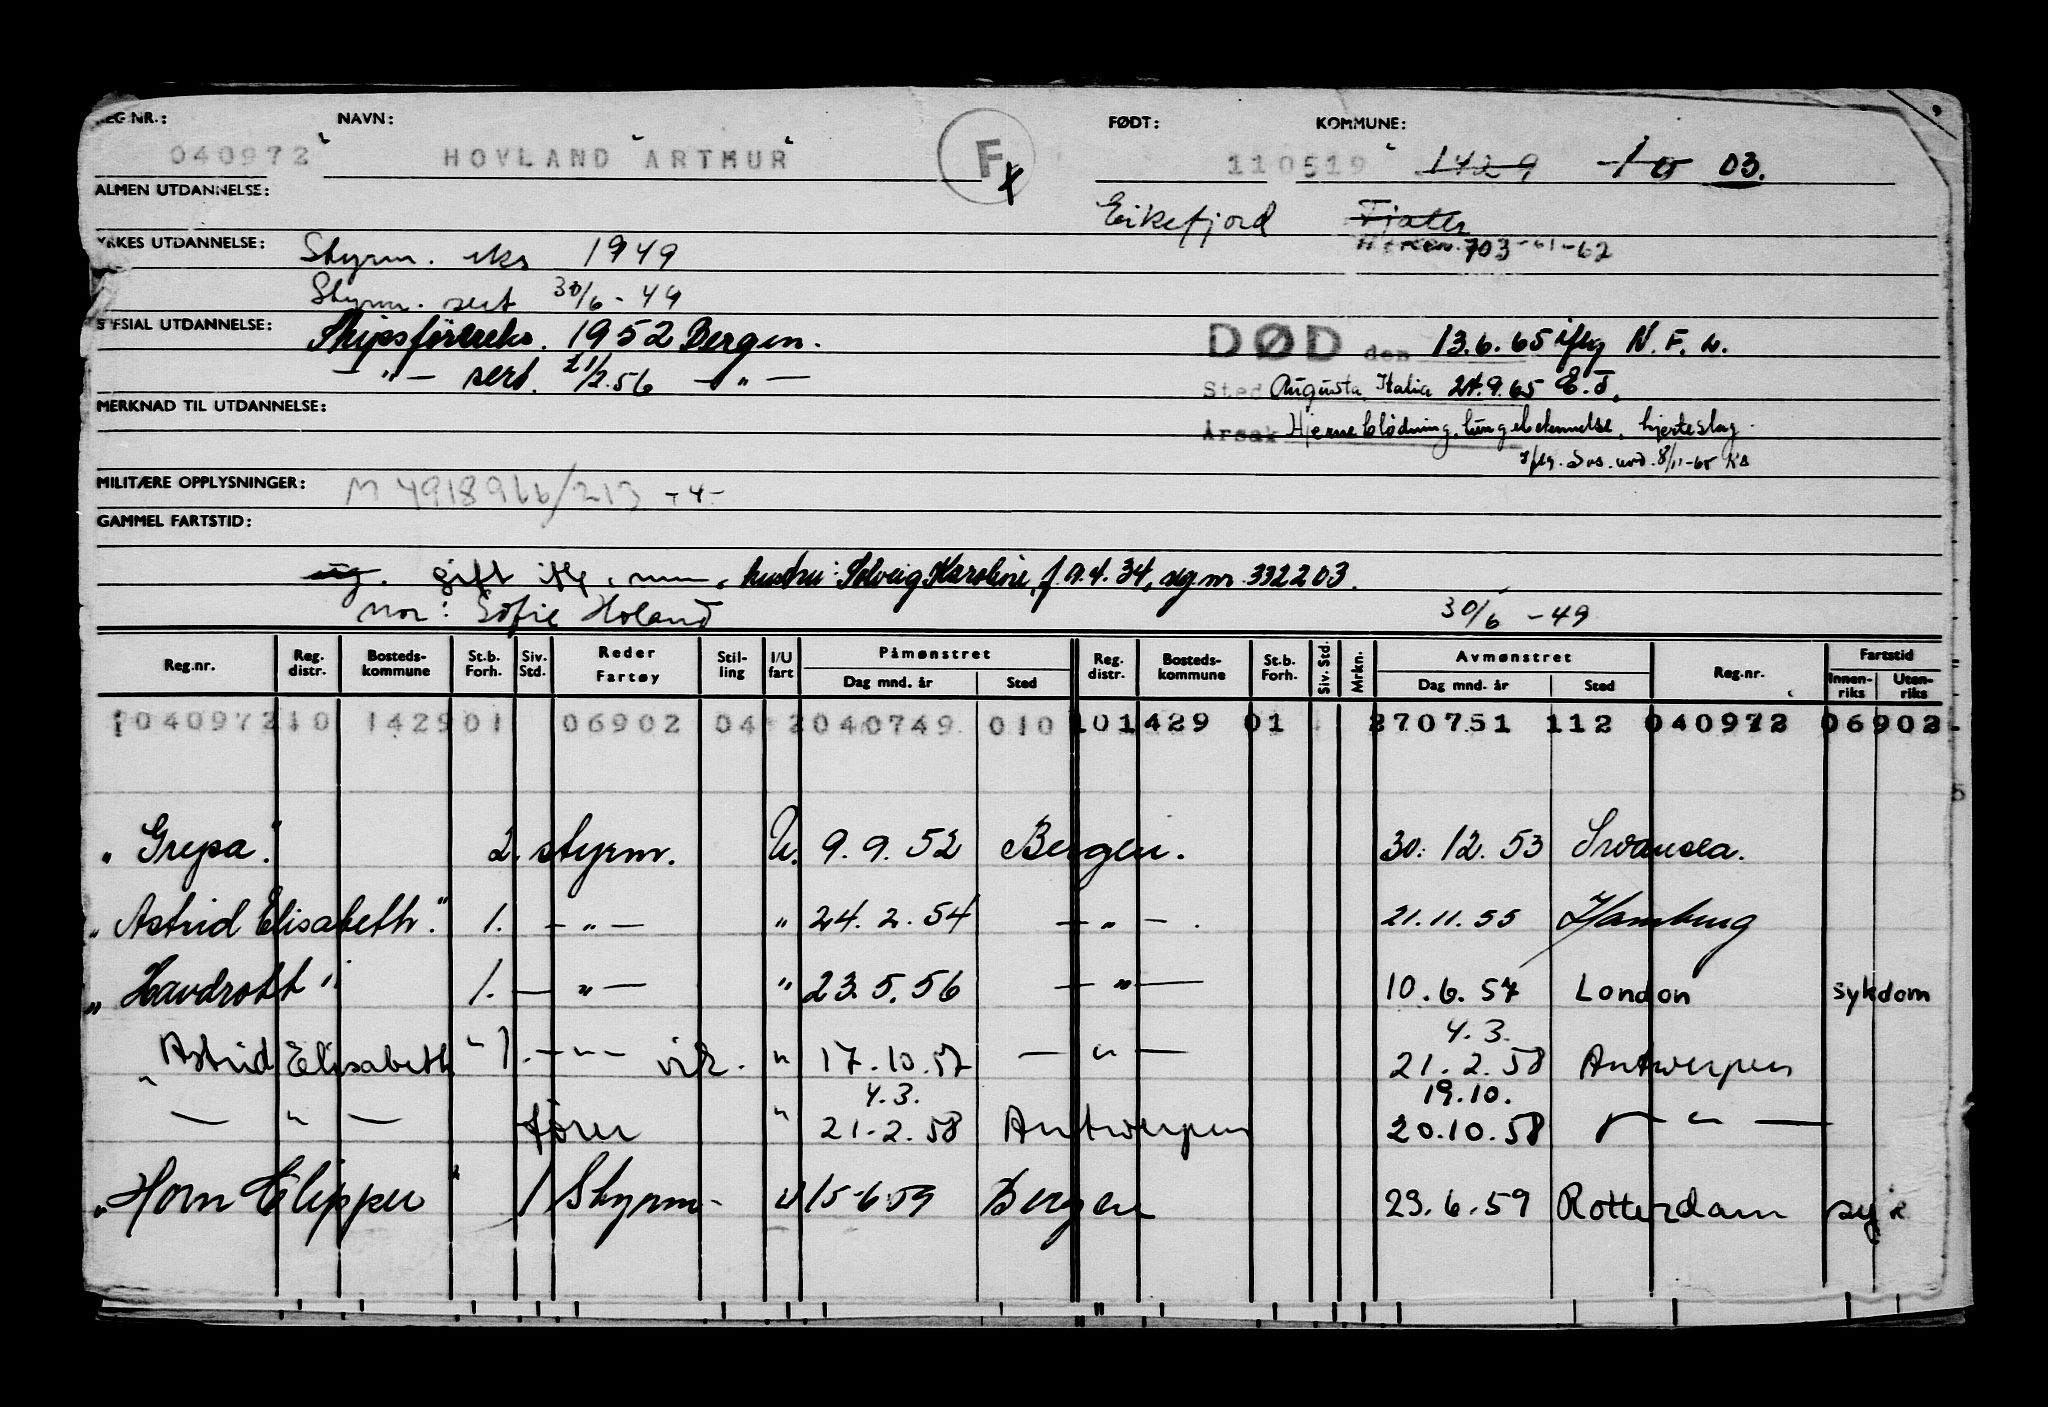 REG.NR.: NAVN: FØDT: KOMMUNE:
040972 HOVLAND ARTHUR F 110519 1429 03.
ALMEN UTDANNELSE:
Eikefjord Fjaler
703-61-62
YRKES UTDANNELSE: Styrm. eks 1949
Styrm. sert 30/6-49
SPESIAL UTDANNELSE: Skipsförereks. 1952 Bergen. DØD den 13.6.65 iflg N.F.
— " — sert. 21/2.56 — " — Sted Augusta Italia 24.9.65 E.T.
MERKNAD TIL UTDANNELSE:
Årsak Hjerneblödning, lungebetennelse, hjerteslag.
iflg. 8/11-65
MILITÆRE OPPLYSNINGER: M 4918966/213 -4-
GAMMEL FARTSTID:
ug. gift hustru: Solveig Karoline, f. 34, reg nr 332203.
mor: Sofie Hovland 30/6-49
Reg.nr. Reg. distr. Bosteds-kommune St.b. Forh. Siv. Std. Reder Fartøy Stil-ling I/U fart Påmønstret Dag mnd. år Sted Reg. distr. Bosteds-kommune St.b. Forh. Siv. Std. Mrkn. Avmønstret Dag mnd. år Sted Reg.nr. Fartstid Innen-riks Uten-riks
040972 10 1429 01 06902 04 2 040749 010 101429 01 270751 112 040972 06902
"Grepa." 2. styrm. U. 9.9.52 Bergen. 30.12.53 Swansea.
"Astrid Elisabeth." 1. — " — " 24.2.54 — " — . 21.11.55 Hamburg
"Havdrott" 1. — " — " 23.5.56 — " — 10.6.57 London sykdom
4.3.
"Astrid Elisabeth" 1. — " — vik. " 17.10.57 — " — 21.2.58 Antwerpen
4.3. 19.10.
— " — förer " 21.2.58 Antwerpen 20.10.58 — " —
"Horn Clipper" 1 Styrm. U 15-6-59 Bergen 23.6.59 Rotterdam syk